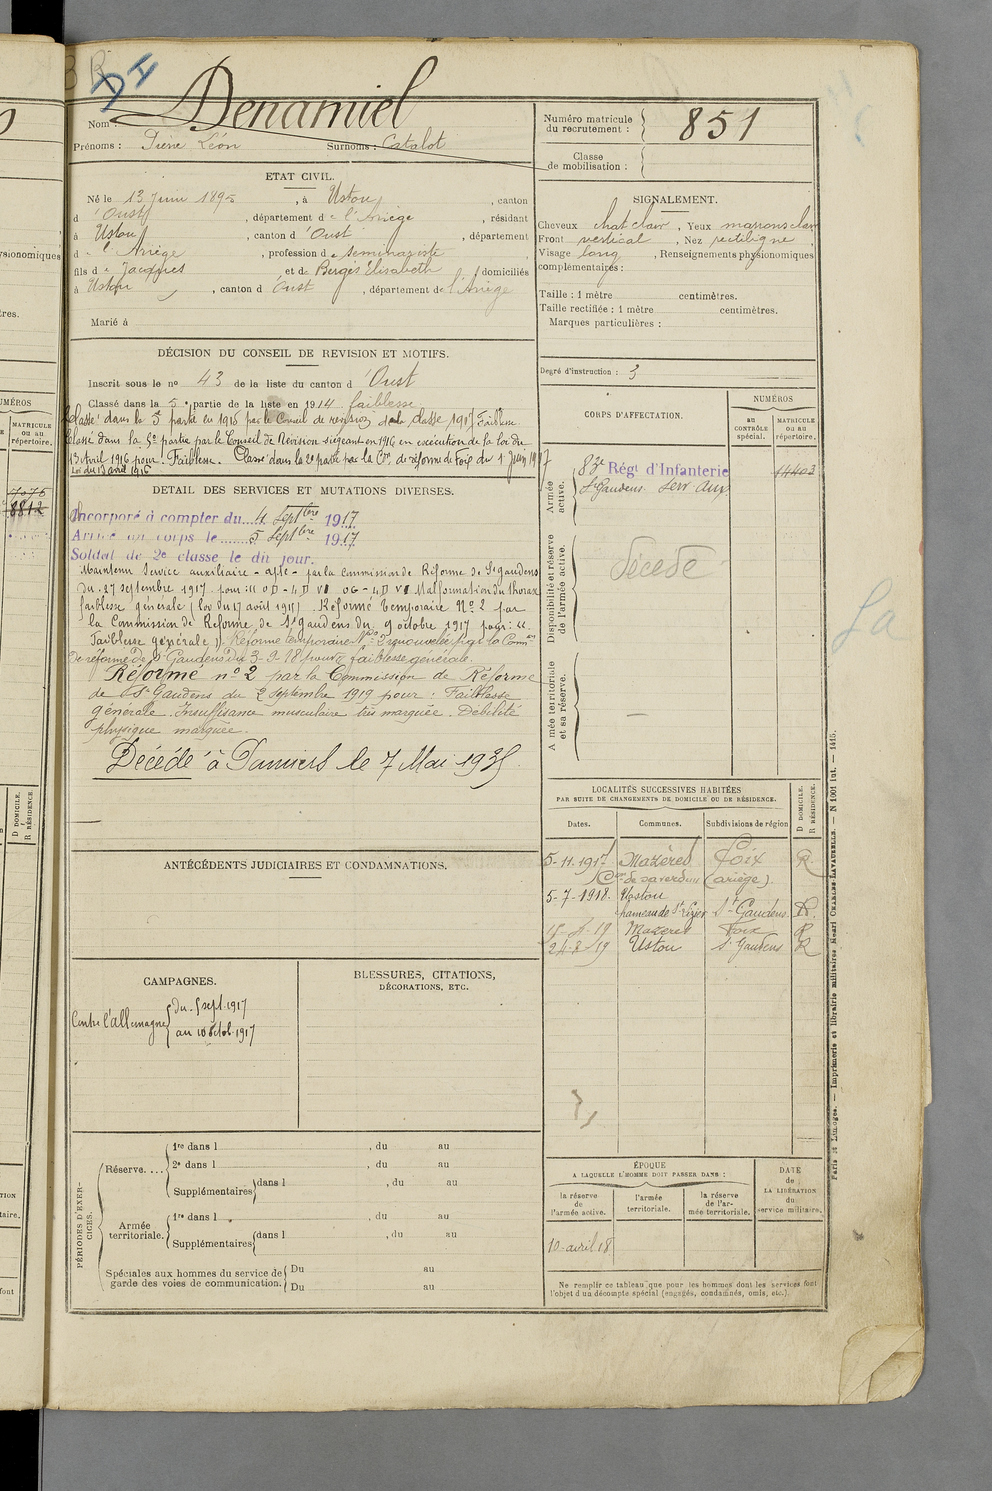 Nom : Denamiel
Prénoms : Pierre Léon Surnoms : Catalot
Numéro matricule du recrutement : 851
Classe de mobilisation :
ETAT CIVIL.
Né le 13 Juin 1895, à Ustou, canton
d'Oust, département de l'Ariège, résidant
à Ustou, canton d'Oust, département
de l'Ariège, profession de séminariste
fils de Jacques et de Bergès Élisabeth domiciliés
à Ustou, canton d'Oust, département de l'Ariège
Marié à
SIGNALEMENT.
Cheveux chat clair, Yeux marrons clair
Front vertical, Nez rectiligne,
Visage long, Renseignements physionomiques
complémentaires :
Taille : 1 mètre centimètres.
Taille rectifiée : 1 mètre centimètres.
Marques particulières :
Degré d'instruction : 3
DÉCISION DU CONSEIL DE REVISION ET MOTIFS.
Inscrit sous le no 43 de la liste du canton d'Oust
Classé dans la 5e partie de la liste en 1914 faiblesse
Classé dans la 5 partie en 1915 par le Conseil de revision de la classe 1917 Faiblesse
Classé dans la 5e partie par le Conseil de Revision siégeant en 1916 en exécution de la loi du
13 Avril 1916 pour Faiblesse. Classé dans la 2e partie par la Con de réforme de Foix du 1 juin 1917
Loi du 13 avril 1916
DETAIL DES SERVICES ET MUTATIONS DIVERSES.
Incorporé à compter du 4 Septbre 1917
Arrivé au corps le 5 Septbre 1917
Soldat de 2e classe le dit jour.
Maintenu Service auxiliaire - apte - par la Commission de Réforme de St gaudens
du 27 septembre 1917 pour : OD - 4D VI OG - 4D VI Malformation du thorax
faiblesse générale (loi du 17 août 1915) Réformé temporaire No 2 par
la Commission de Réforme de St gaudens du 9 octobre 1917 pour : "
Faiblesse générale). Réforme temporaire No 2 renouvelée par la Comon
de réforme de St Gaudens du 3-9-18 pour faiblesse générale.
Réformé no 2 par la Commission de Réforme
de St Gaudens du 2 Septembre 1919 pour : Faiblesse
générale. Insuffisance musculaire très marquée. Débilité
physique marquée.
Décédé à Pamiers le 7 Mai 1935.
CORPS D'AFFECTATION.
NUMÉROS
au CONTRÔLE spécial.
MATRICULE ou au répertoire.
Armée active.
83e Régt d'Infanterie 14403
St Gaudens Serv aux
Disponibilité et réserve de l'armée active.
Décédé
Armée territoriale et sa réserve.
LOCALITÉS SUCCESSIVES HABITÉES
PAR SUITE DE CHANGEMENTS DE DOMICILE OU DE RÉSIDENCE.
D DOMICILE. R RÉSIDENCE.
Dates. Communes. Subdivisions de région
5-11-1917 Mazères Foix R
Con de Saverdun (Ariège).
5-7-1918 Ustou
hameau de St Lizier St Gaudens R.
Mazères Foix R
24-8-19 Ustou St Gaudens R
ANTÉCÉDENTS JUDICIAIRES ET CONDAMNATIONS.
CAMPAGNES.
Contre l'Allemagne du 5 sept. 1917
au 10 octob. 1917
BLESSURES, CITATIONS,
DÉCORATIONS, ETC.
PÉRIODES D'EXERCICES.
Réserve....
1re dans l , du au
2e dans l , du au
Supplémentaires dans l , du au
Armée territoriale.
1re dans l , du au
Supplémentaires dans l , du au
Spéciales aux hommes du service de garde des voies de communication.
Du au
Du au
ÉPOQUE
A LAQUELLE L'HOMME DOIT PASSER DANS :
DATE de LA LIBÉRATION du service militaire.
la réserve de l'armée active.
l'armée territoriale.
la réserve de l'armée territoriale.
10-avril 18
Ne remplir ce tableau que pour les hommes dont les services font
l'objet d'un décompte spécial (engagés, condamnés, omis, etc.).
Paris et Limoges. — Imprimerie et librairie militaires Henri CHARLES-LAVAUZELLE. — N 1001 int. — 1415.
La